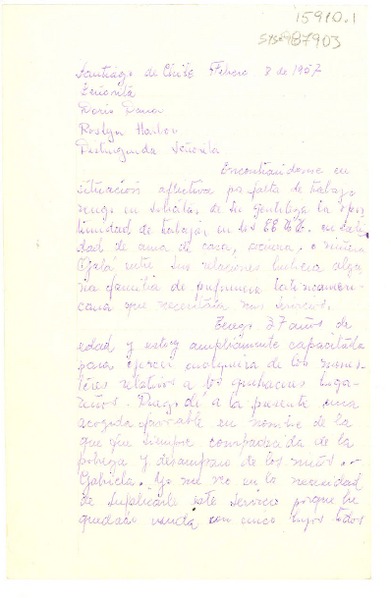 15910.1
SYS 987903
Santiago de Chile Febrero 8 de 1957
Señorita
Doris Dana
Roslyn Harbor
Distinguida Señorita
Encontrándome en
situación aflictiva por falta de trabajo
vengo en solicitar de su gentileza la opor
tunidad de trabajar en los EE.UU. en cali
dad de ama de casa, cocinera, o niñera
Ojalá entre sus relaciones hubiera algu
na familia de preferencia latinoameri
cana que necesitara mis servicios.
Tengo 37 años de
edad y estoy ampliamente capacitada
para ejercer cualquiera de los menes
teres relativos a los quehaceres hoga
reños. Ruego dé a la presente una
acogida favorable en nombre de la
que fue siempre compadecida de la
pobreza y desamparo de los niños
Gabriela. Yo me veo en la necesidad
de suplicarle este servicio porque he
quedado viuda con cinco hijos todos